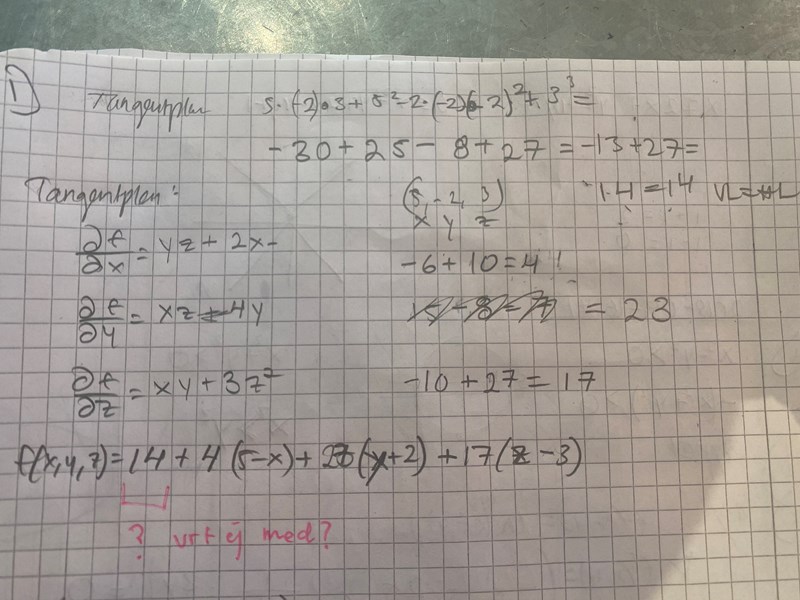 1)
Tangentplan 5·(-2)·3+5²-2·(-2)²+3³=
-30+25-8+27=-13+27=
Tangentplan: (5,-2,3) 14=14 VL=HL
x y z
∂f/∂x = yz+2x- -6+10=4!
∂f/∂y = xz-4y = 23
∂f/∂z = xy+3z² -10+27=17
f(x,y,z)=14+4(5-x)+23(y+2)+17(z-3)
? vrf ej med?